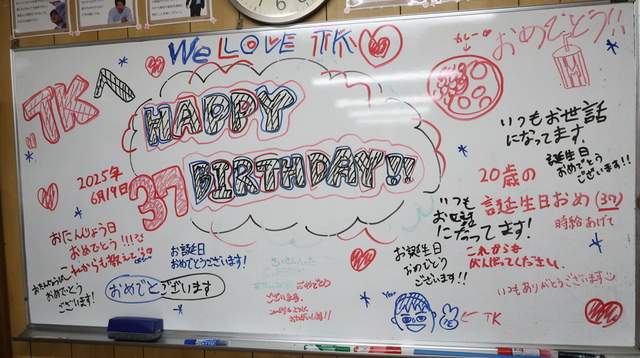 We LOVE TK
TKへ
HAPPY
37 BIRTHDAY!!
2025年
6月19日
カレー
おめでとう!!
いつもお世話
になってます。
誕生日
おめでとう
ございます!!
20歳の
誕生日おめ(37)
時給あげて
いつも
お世話
になってます!
これからも
がんばってください。
お誕生日
おめでとう
ございます!!
いつもありがとうございます
おたんじょう日
おめでとう!!!
これからも
おめでとう
ございます!
お誕生日
おめでとうございます!
おめでとうございます
おめでとう
ございます。
TK